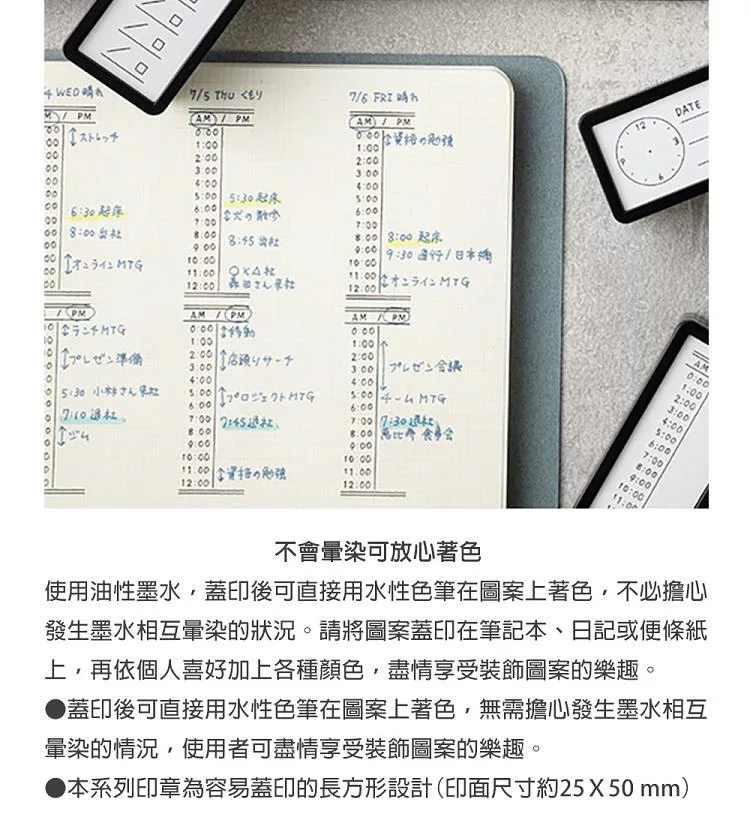 4 WED 晴れ
7/5 THU くもり
7/6 FRI 晴れ
DATE
12
3
6
9
/ PM
ストレッチ
6:30 起床
8:00 出社
オンラインMTG
/ PM
ランチMTG
プレゼン準備
5:30 小林さん来社
7:10 退社
ジム
AM / PM
0:00
1:00
2:00
3:00
4:00
5:00 5:30 起床
6:00
7:00 犬の散歩
8:00
9:00 8:45 出社
10:00
11:00 ○×△社
12:00 森田さん来社
AM / PM
0:00 移動
1:00
2:00 店頭リサーチ
3:00
4:00
5:00 プロジェクトMTG
6:00
7:00 7:45 退社
8:00
9:00
10:00
11:00 資格の勉強
12:00
AM / PM
0:00 資格の勉強
1:00
2:00
3:00
4:00
5:00
6:00
7:00
8:00 8:00 起床
9:00 9:30 直行/日本橋
10:00
11:00 オンラインMTG
12:00
AM / PM
0:00
1:00
2:00
3:00 プレゼン会議
4:00
5:00 チームMTG
6:00
7:00 7:30 退社
8:00 恵比寿 食事会
9:00
10:00
11:00
12:00
AM
0:00
1:00
2:00
3:00
4:00
5:00
6:00
7:00
8:00
9:00
10:00
11:00
不會暈染可放心著色
使用油性墨水，蓋印後可直接用水性色筆在圖案上著色，不必擔心
發生墨水相互暈染的狀況。請將圖案蓋印在筆記本、日記或便條紙
上，再依個人喜好加上各種顏色，盡情享受裝飾圖案的樂趣。
●蓋印後可直接用水性色筆在圖案上著色，無需擔心發生墨水相互
暈染的情況，使用者可盡情享受裝飾圖案的樂趣。
●本系列印章為容易蓋印的長方形設計(印面尺寸約25X50 mm)